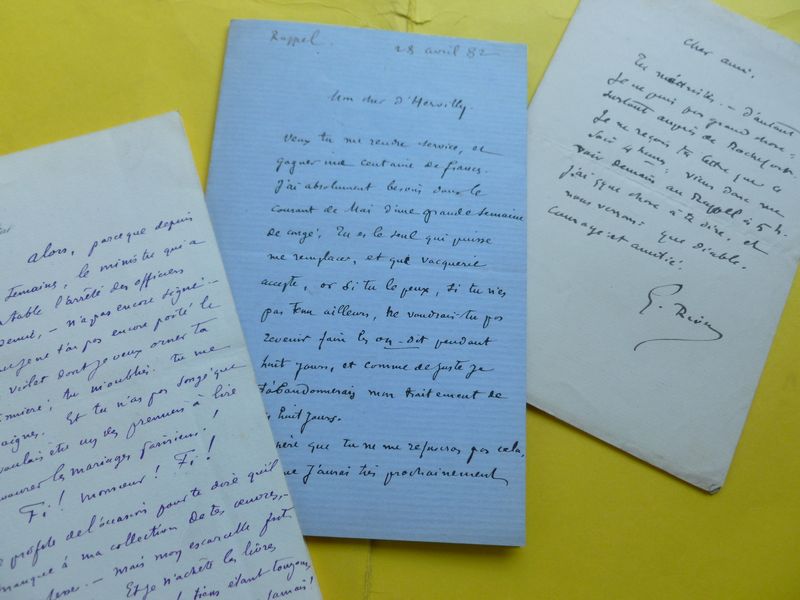 alors, parce que depuis
semaines, le ministre qui a
table l'arrêté des officiers
- n'a pas encore signé. -
t'ai pas encore porté le
violet dont je veux orner ta
; tu m'oublies. tu me
Et tu n'as pas songé que
voulais être un des premiers à lire
les mariages parisiens!
Fi! Monsieur! Fi!
profite de l'occasion pour te dire qu'il
manque à ma collection de tes œuvres, -
- mais mon escarcelle fut
Et je n'achète les livres
étant toujours,
jamais!
Rappel. 28 avril 82
Mon cher d'Hervilly.
Veux tu me rendre service, et
gagner une centaine de francs.
J'ai absolument besoin dans le
courant de Mai d'une grande semaine
de congé. Tu es le seul qui puisse
me remplacer, et que Vacquerie
accepte, or si tu le peux, si tu n'es
pas tenu ailleurs, ne voudrais-tu pas
revenir faire les on-dit pendant
huit jours, et comme de juste je
t'abandonnerais mon traitement de
huit jours.
que tu ne me refuseras pas cela,
que j'aurai très prochainement
Cher ami.
Tu - D'autant
Je ne puis pas grand chose,
surtout auprès de Rochefort.
Je ne reçois ta lettre que ce
soir 4 heures, viens donc me
voir demain au Rappel à 5 h.
j'ai qque chose à te dire, et
nous verrons que diable.
Courage et amitié.